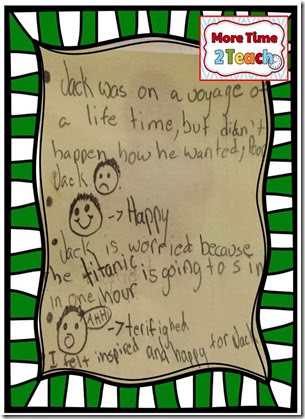 More Time
2Teach
• Jack was on a voyage of
a life time, but didn't
happen how he wanted, Poor
Jack
-> Happy
• Jack is worried because
he titanic is going to sin
in one hour
AHH!
-> terifighed
I felt inspired and happy for Jack